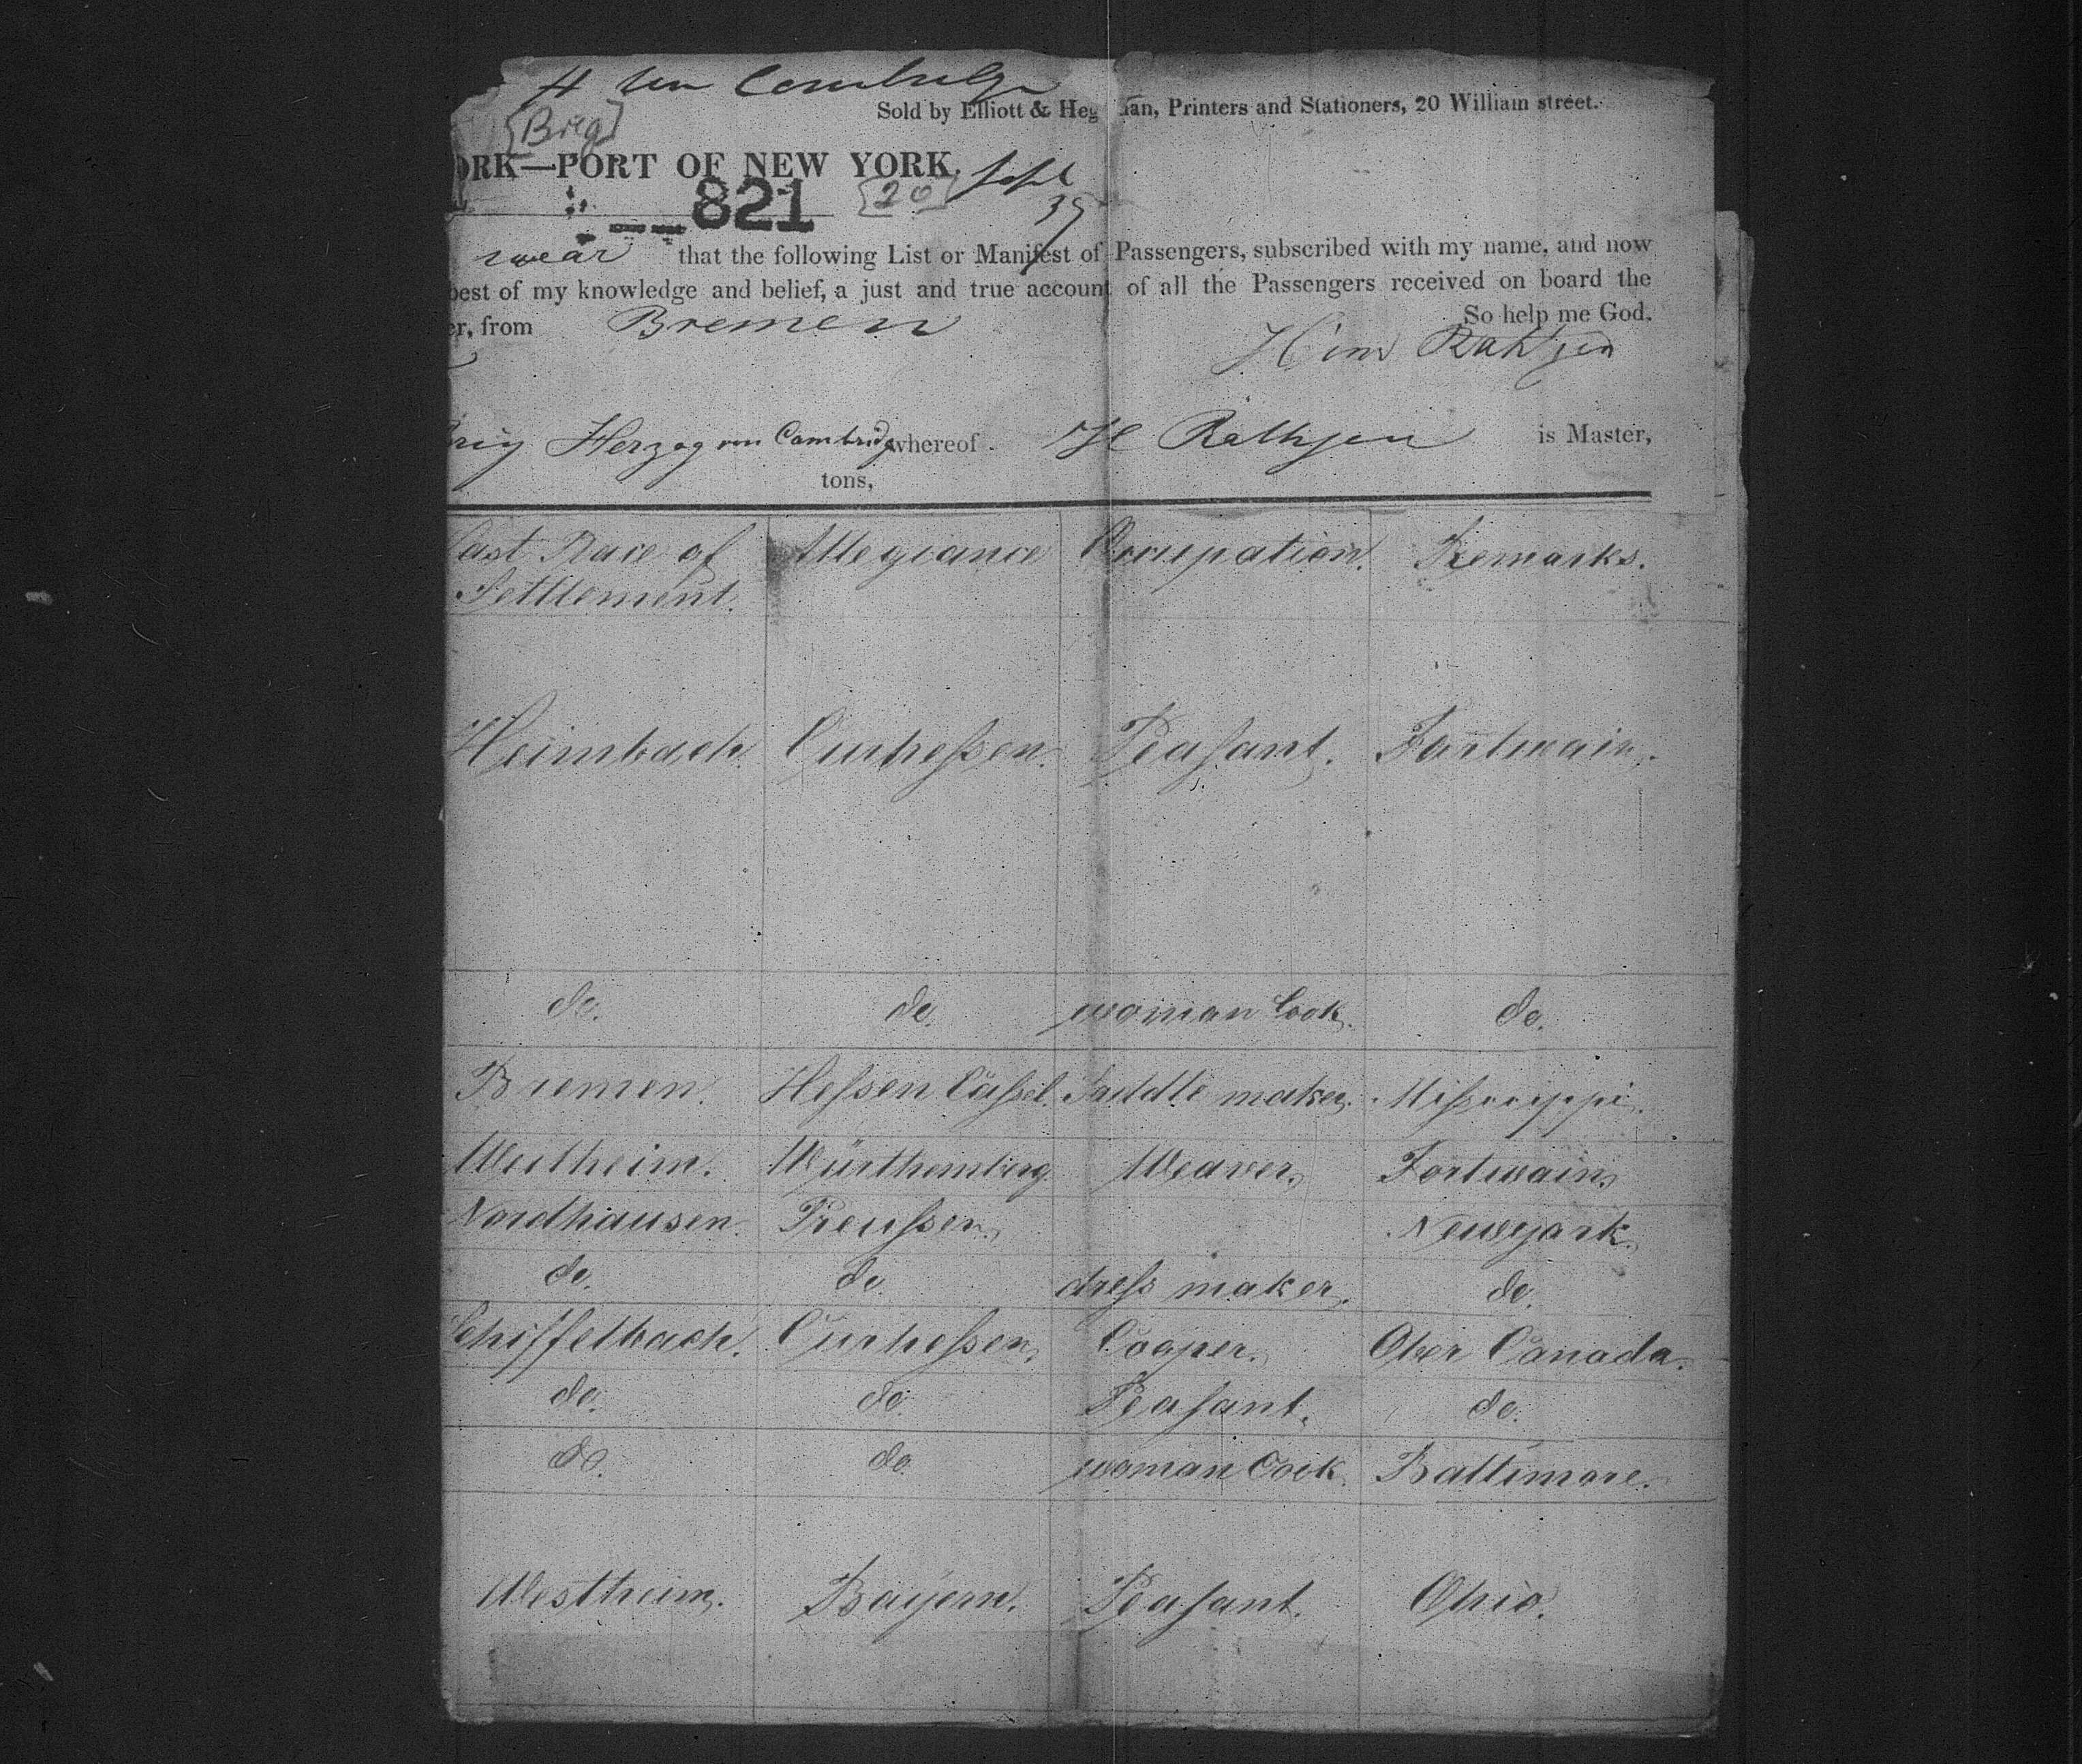 H von Cambridge
Sold by Elliott & Heg an, Printers and Stationers, 20 William street.
[Brig]
ORK—PORT OF NEW YORK.
821 [20] Sept
swear that the following List or Manifest of Passengers, subscribed with my name, and now
best of my knowledge and belief, a just and true account of all the Passengers received on board the
er, from Bremen So help me God.
Hinr Rahtjen
Brig Herzog von Cambridge whereof H Rathjen is Master,
tons,
Last Place of Settlement. Allegiance Occupation. Remarks.
Heimbach. Curhessen. Peasant. Fortwain.
do. do. woman Cook. do.
Bremen. Hessen Cassel. Saddle maker. Missisippi.
Weilheim. Würthemberg. Weaver. Fortwain.
Nordhausen. Preussen. Newyork.
do. do. dress maker. do.
Schiffelbach. Curhessen. Cooper. Ober Canada.
do. do. Peasant. do.
do. do. woman Cook. Baltimore.
Westheim. Bayern. Peasant. Ohio.